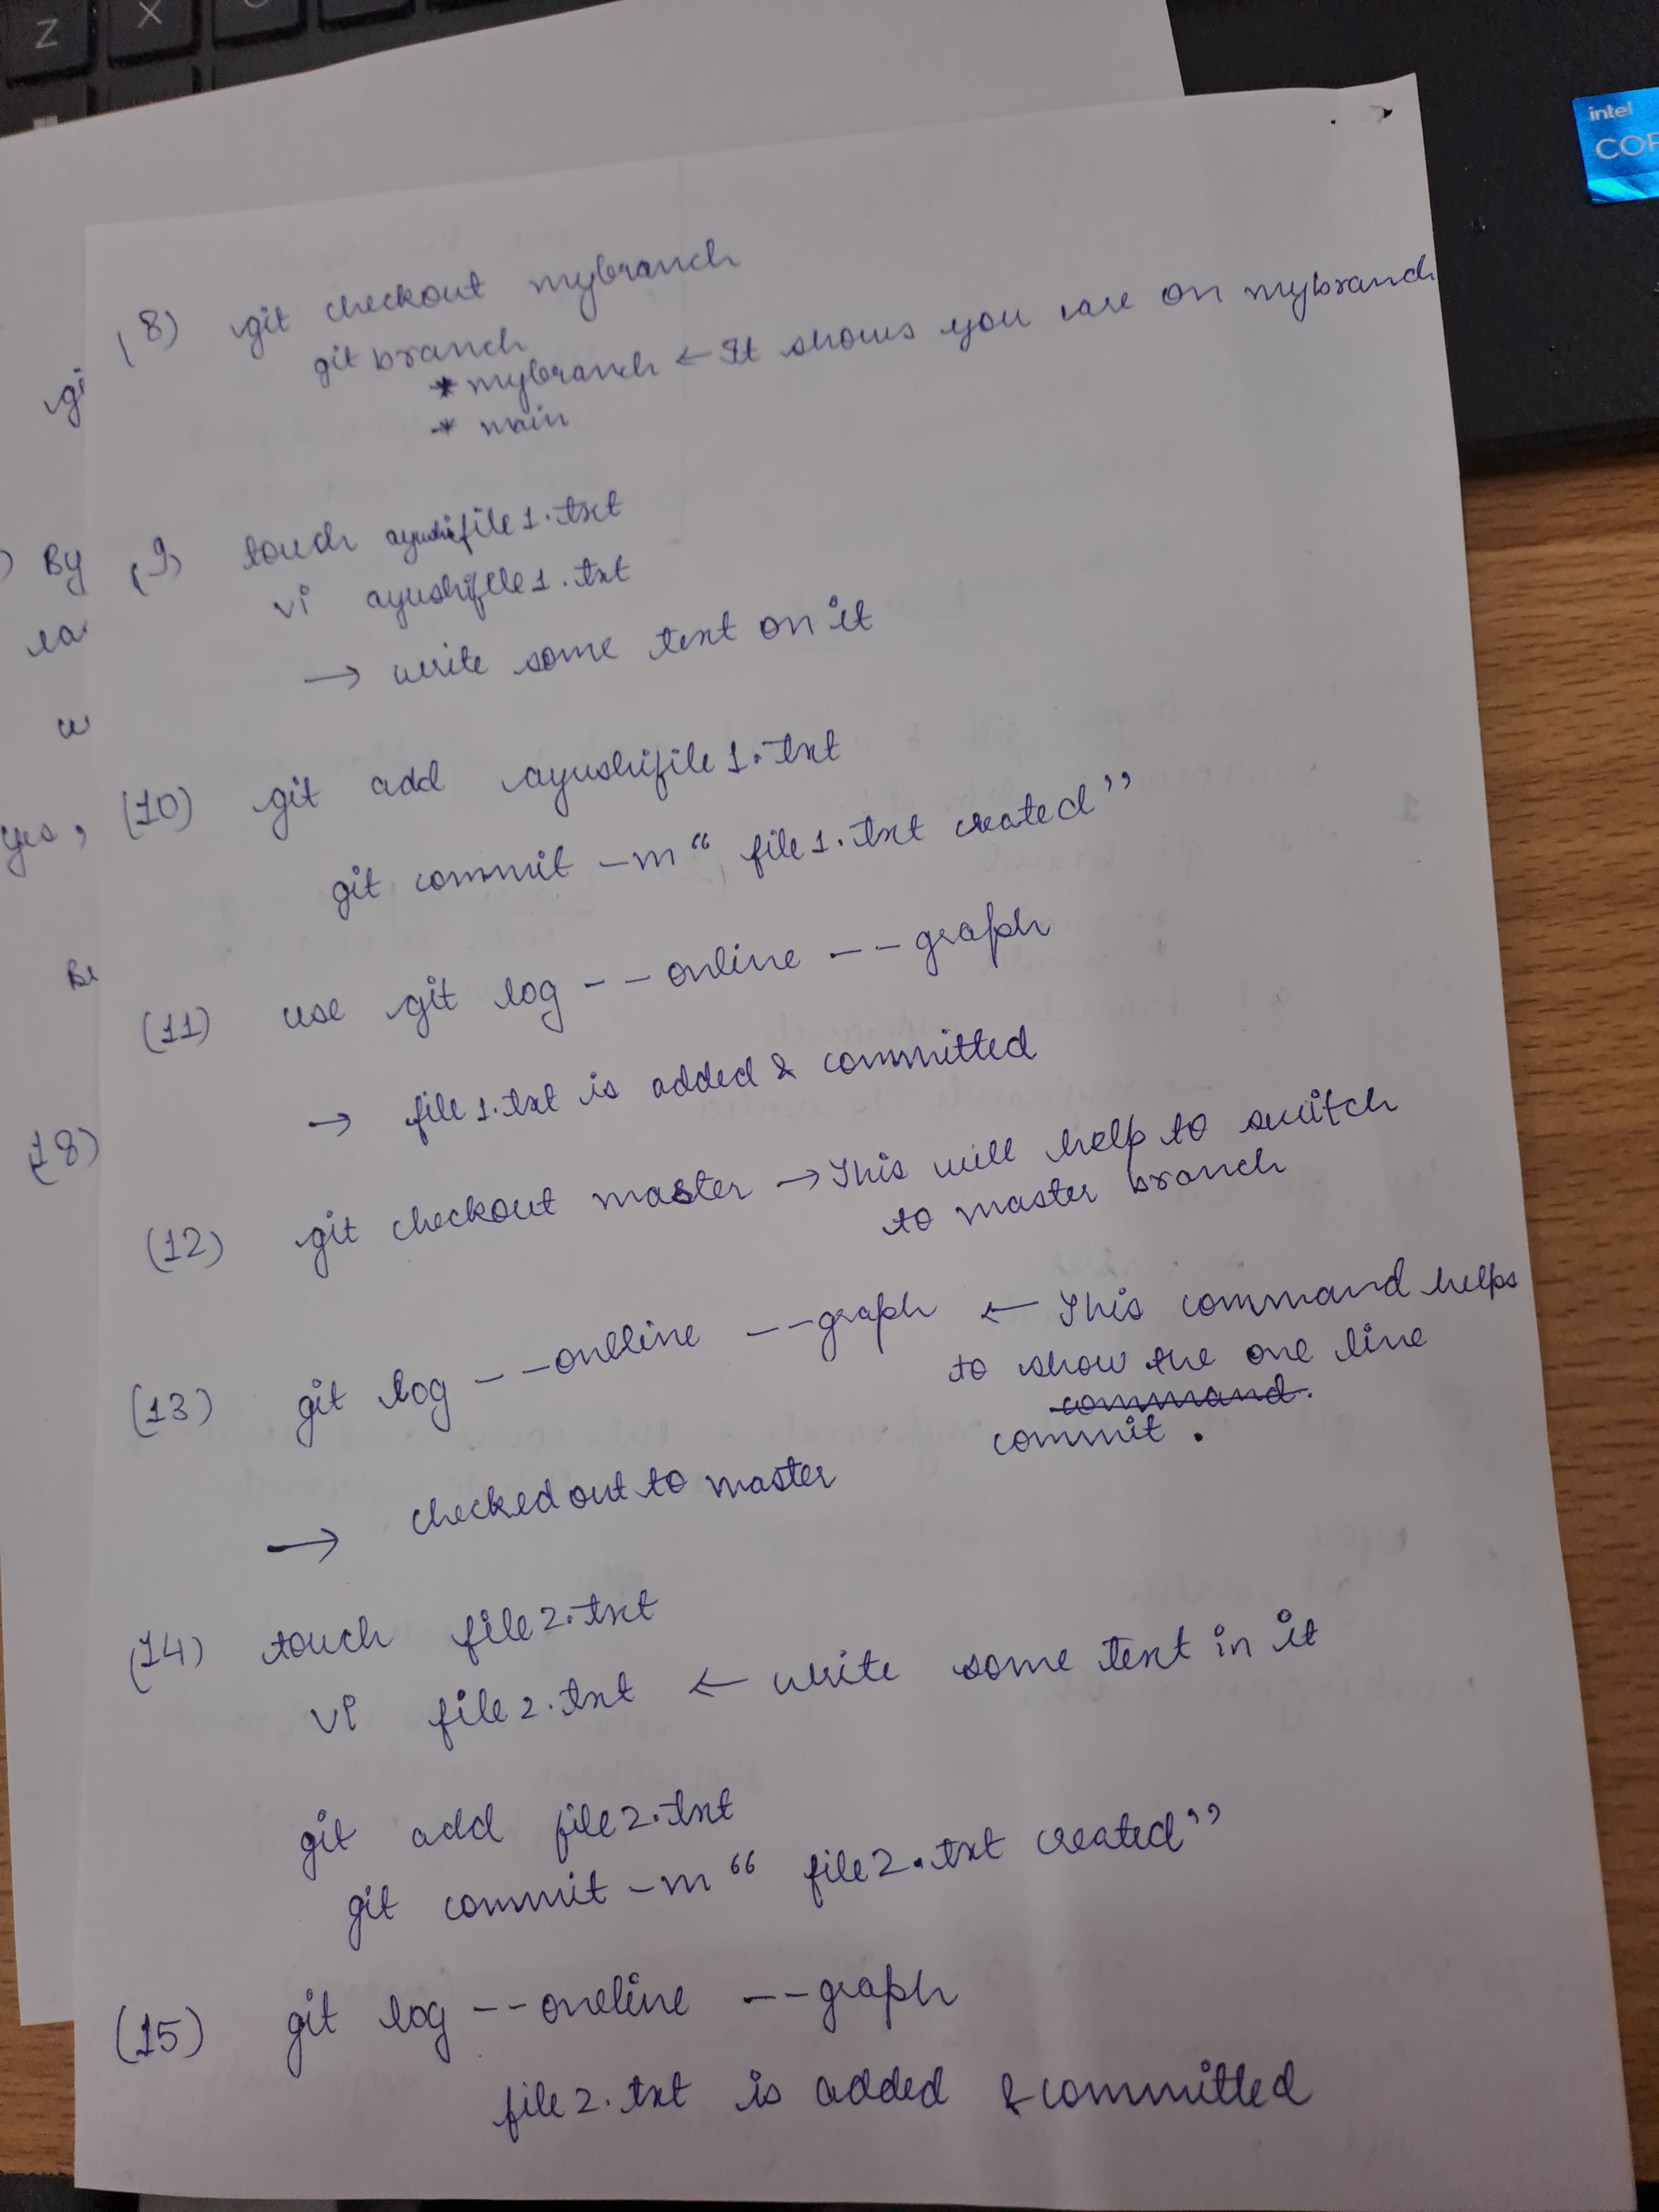 Z X
intel
COR
(8) git checkout mybranch
git branch
* mybranch ← It shows you are on mybranch
* main
(9) touch ayushifile1.txt
vi ayushifile1.txt
→ write some text on it
(10) git add ayushifile1.txt
git commit -m “ file1.txt created”
(11) use git log --online --graph
→ file1.txt is added & committed
(12) git checkout master → This will help to switch
to master branch
(13) git log --onelline --graph ← This command helps
to show the one line
command.
commit.
→ checked out to master
(14) touch file2.txt
vi file2.txt ← write some text in it
git add file2.txt
git commit -m “ file2.txt created”
(15) git log --oneline --graph
file2.txt is added & committed
gi
By
w
yes,
(18)